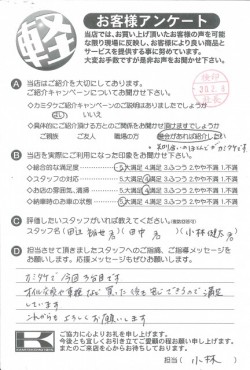 軽
お客様アンケート
当店では、お買い上げ頂いたお客様の声を可能
な限り現場に反映し、お客様により良い商品と
サービスを提供する事に努めています。
大変お手数ですが是非お声をお聞かせ下さい。
A 当店はご紹介を大切にしております。
ご紹介キャンペーンについてお聞かせ下さい
○カミタケご紹介キャンペーンのご説明はありましたでしょうか
はい いいえ
○具体的にご紹介頂ける方とのご関係をお聞かせ頂けますでしょうか
ご親族 ご友人 職場の方
カミタケです
B 当店を実際にご利用になった印象をお聞かせ下さい。
○総合的な満足度 5.大満足 4.満足 3.ふつう 2.やや不満 1.不満
○スタッフの対応 5.大満足 4.満足 3.ふつう 2.やや不満 1.不満
○お店の雰囲気、清掃 5.大満足 4.満足 3.ふつう 2.やや不満 1.不満
○納車時のお車の状態 5.大満足 4.満足 3.ふつう 2.やや不満 1.不満
C 評価したいスタッフがいれば教えてください。
スタッフ名
D 担当させて頂きましたスタッフへのご指摘、ご指導メッセージを
お願いします。応援メッセージもぜひお願いします。
カミタケで今回3台目です
オイル交換や車検など買った後も安心できるので満足
しています
これからもよろしくお願いします
K
ご協力に心よりお礼を申し上げます。
今後とも宜しくお引き立てご愛顧の程お願い申し上げます。
またのご来店を心からお待ちしております。
担当( 小林 )